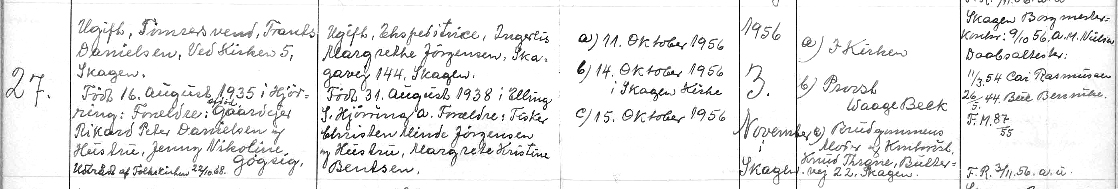 27.
Ugift, Tömrersvend, Frants
Danielsen, Ved Kirken 5,
Skagen.
Född 16. August 1935 i Hjör-
ring; Forældre: afdöd Gaardejer
Rikard Peter Danielsen og
Hustru, Jenny Nikoline,
Gögsig.
Udtrådt af Folkekirken 22/10 68.
Ugift, Ekspeditrice, Ingerlis
Margrethe Jörgensen, Ska-
gavej 144, Skagen.
Född 31. August 1938 i Elling
S. Hjörring A. Forældre: Fisker
Christen Minde Jörgensen
og Hustru, Margrete Kristine
Bentsen.
a) 11. Oktober 1956
b) 14. Oktober 1956
i Skagen Kirke
c) 15. Oktober 1956
1956
3.
November
i
Skagen
a) I Kirken
b) Provst
Waage Beck
c) Brudgommens
Moder og
Knud Thrane, Butter-
vej 22, Skagen.
Skagen Borgmester-
Kontor: 9/10 56. A.M. Nielsen
Daabsattester:
11/3.54 Cai Rasmussen
26/5.44.
F.M. 87/55
F.R. 3/11.56. a.u.